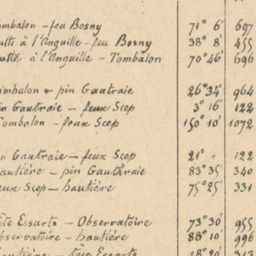 mbalon - feu Bosny 71° 6' 607
ults à l'Anguille - feu Bosny 38° 8' 455
à l'Anguille - Tombalon 70° 46' 696
imbalon - pin Gautraie 26° 34' 964
in Gautraie - feux Scep 3° 16' 122
Tombalon - feux Scep 150° 10' 1072
n Gautraie - feux Scep 21° 122
autière - pin Gautraie 83° 35' 340
eux Scep - hautière 75° 25' 331
Essarts - Observatoire 73° 30' 955
bservatoire - hautière 88° 10' 996